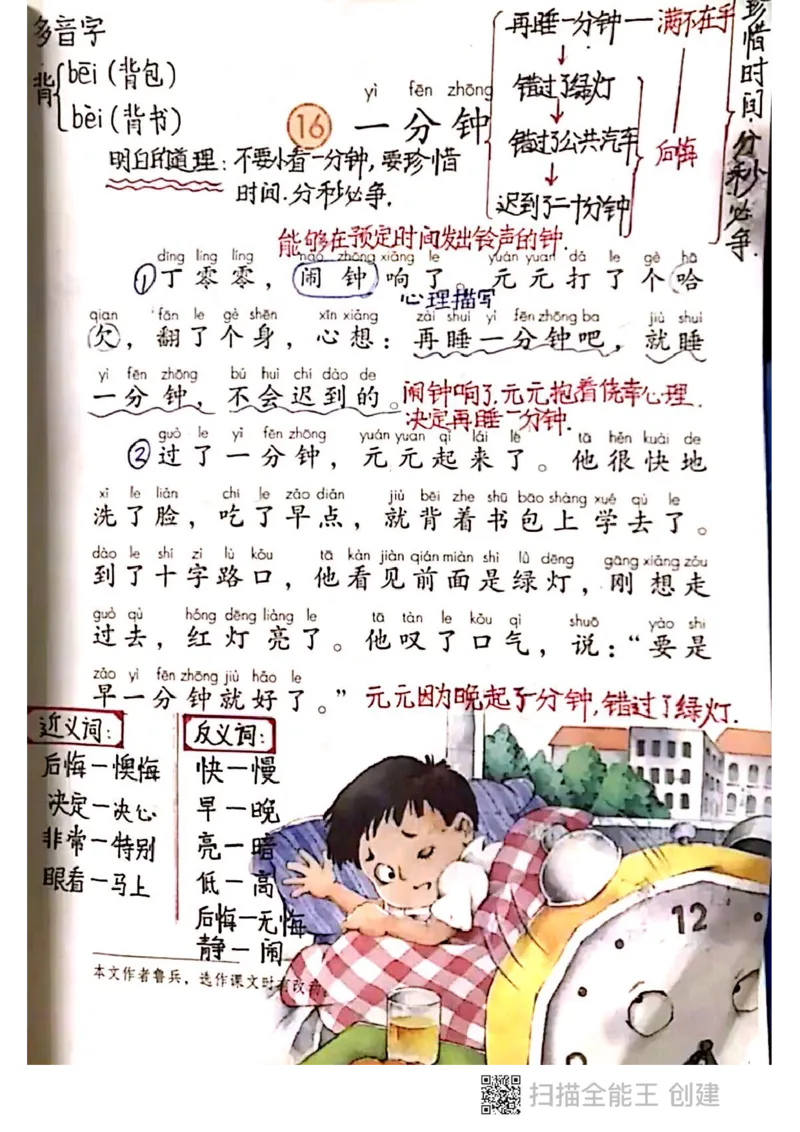 多音字
背 bēi（背包）
bèi（背书）
yì fēn zhōng
16 一分钟
明白的道理：不要小看一分钟，要珍惜
时间.分秒必争.
再睡一分钟 — 满不在乎
错过了绿灯
错过了公共汽车
后悔
迟到了二十分钟
珍惜时间.分秒必争.
能够在预定时间发出铃声的钟.
dīng líng líng nào zhōng xiǎng le yuán yuan dǎ le gè hā
①丁零零，闹钟响了。元元打了个哈
心理描写
qian fān le gè shēn xīn xiǎng zài shuì yì fēn zhōng ba jiù shuì
欠，翻了个身，心想：再睡一分钟吧，就睡
yì fēn zhōng bú huì chí dào de
一分钟，不会迟到的。
闹钟响了.元元抱着侥幸心理.
决定再睡一分钟.
guò le yì fēn zhōng yuán yuan qǐ lái le tā hěn kuài de
②过了一分钟，元元起来了。他很快地
xǐ le liǎn chī le zǎo diǎn jiù bēi zhe shū bāo shàng xué qù le
洗了脸，吃了早点，就背着书包上学去了。
dào le shí zì lù kǒu tā kàn jiàn qián miàn shì lǜ dēng gāng xiǎng zǒu
到了十字路口，他看见前面是绿灯，刚想走
guò qù hóng dēng liàng le tā tàn le kǒu qì shuō yào shi
过去，红灯亮了。他叹了口气，说：“要是
zǎo yì fēn zhōng jiù hǎo le
早一分钟就好了。”
元元因为晚起了一分钟，错过了绿灯.
近义词：
后悔—懊悔
决定—决心
非常—特别
眼看—马上
反义词：
快—慢
早—晚
亮—暗
低—高
后悔—无悔
静—闹
本文作者鲁兵，选作课文时有改动。
12
扫描全能王 创建